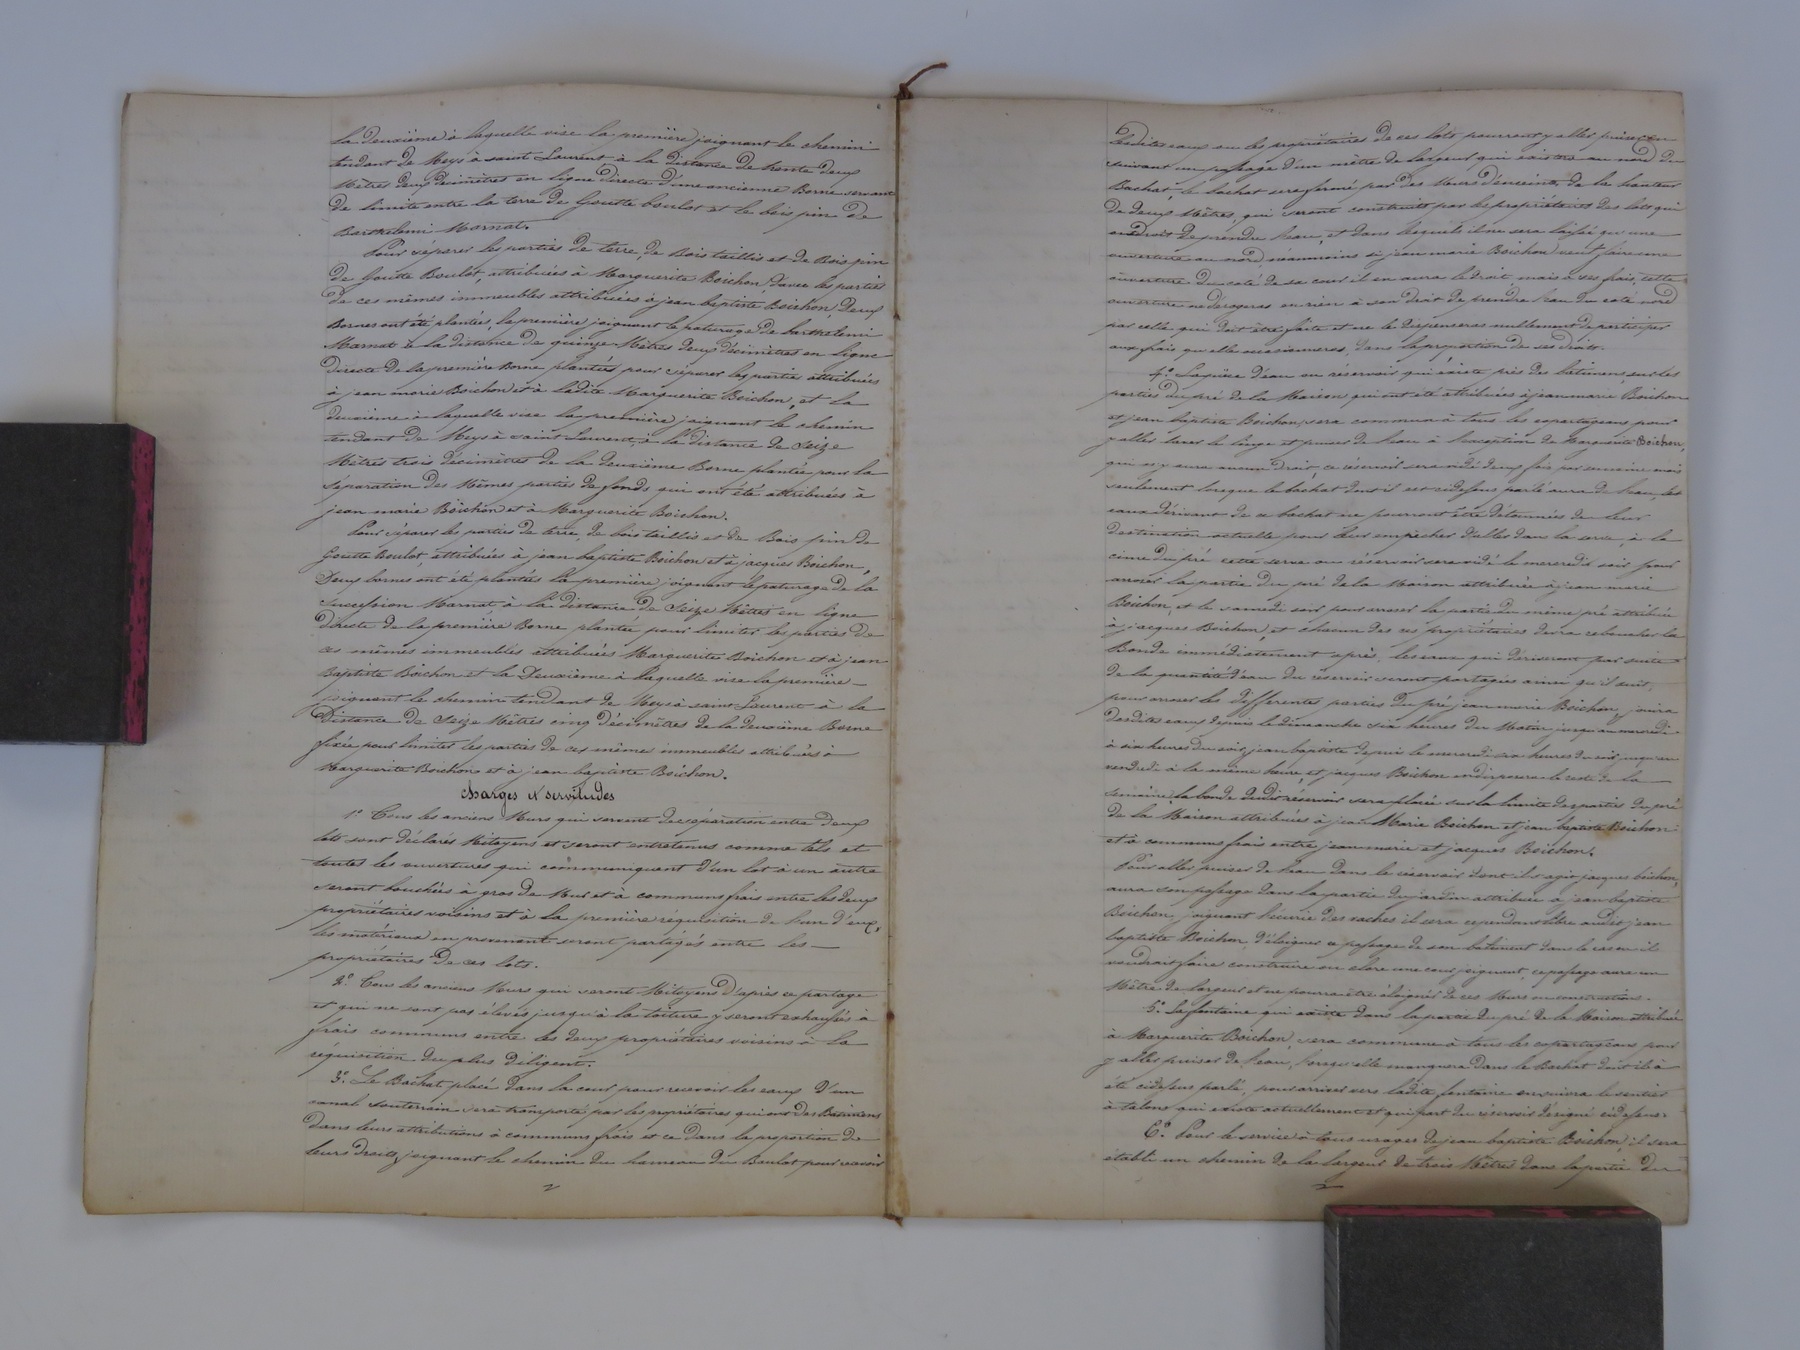 la deuxième à laquelle vise la première joignant le chemin
tendant de Meys à saint Laurent à la distance de trente deux
Mètres deux décimètres en ligne directe d'une ancienne Borne servant
de limite entre la terre de Goutte boulot et le bois pin de
Barthelemi Marnat.
Pour séparer les parties de terre, de Bois taillis et de Bois pin
de Goutte Boulot, attribuées à Marguerite Boichon, d'avec les parties
de ces mêmes immeubles attribuées à jean baptiste Boichon, deux
Bornes ont été plantées, la première joignant le paturage de barthelemi
Marnat à la distance de quinze Mètres deux décimètres en ligne
directe de la première Borne plantée pour séparer les parties attribuées
à jean marie Boichon et à ladite Marguerite Boichon, et la
deuxième à laquelle vise la première joignant le chemin
tendant de Meys à saint Laurent, à la distance de Seize
Mètres trois décimètres de la deuxième Borne plantée pour la
séparation des Mêmes parties de fonds qui ont été attribuées à
jean marie Boichon et à Marguerite Boichon.
Pour séparer les parties de terre, de bois taillis et de Bois pin de
Goutte Boulot, attribuées à jean baptiste Boichon et à jacques Boichon,
Deux bornes ont été plantées la première joignant le paturage de la
succession Marnat, à la distance de Seize Mètres en ligne
directe de la première Borne plantée pour limiter les parties de
ces mêmes immeubles attribuées Marguerite Boichon et à jean
Baptiste Boichon et la Deuxième à laquelle vise la première
joignant le chemin tendant de Meys à saint Laurent à la
Distance de Seize Mètres cinq décimètres de la deuxième Borne
fixée pour limiter les parties de ces mêmes immeubles attribués à
Marguerite Boichon et à jean baptiste Boichon.
charges et servitudes
1.° Tous les anciens Murs qui servent de séparation entre deux
lots sont déclarés Mitoyens et seront entretenus comme tels et
toutes les ouvertures qui communiquent d'un lot à un autre
seront bouchées à gros de Mur et à communs frais entre les deux
propriétaires voisins et à la première réquisition de l'un d'eux,
les matériaux en provenant seront partagés entre les
propriétaires de ces lots.
2.° Tous les anciens Murs qui seront Mitoyens d'après ce partage
et qui ne sont pas élevés jusqu'à la toiture y seront exhaussés à
frais communs entre les deux propriétaires voisins à la
réquisition du plus diligent.
3.° Le Bachat placé dans la cour pour recevoir les eaux d'un
canal souterrain sera transporté par les propriétaires qui ont des Batimens
dans leurs attributions à communs frais et ce dans la proportion de
leurs droits, joignant le chemin du hameau du Boulot pour recevoir
lesdites eaux ou les propriétaires de ces lots pourront y aller puiser en
suivant un passage d'un mètre de largeur qui existera au nord du
Bachat, le bachat sera fermé par des Murs d'enceinte, de la hauteur
de deux Mètres, qui seront construits par les propriétaires des lots qui
ont droit de prendre l'eau, et dans lesquels il ne sera laissé qu'une
ouverture au nord, néanmoins si jean marie Boichon veut faire une
ouverture du coté de sa cour il en aura le droit mais à ses frais, cette
ouverture ne dérogera en rien à son droit de prendre l'eau du coté nord
par celle qui doit être faite et ne le dispensera nullement de participer
aux frais qu'elle occasionnera, dans la proportion de ses droits.
4.° La pièce d'eau ou réservoir qui existe près des batimens, sur les
parties du pré de la Maison qui ont été attribuées à jean marie Boichon
et jean baptiste Boichon, sera commun à tous les copartageans pour
y aller laver le linge et puiser de l'eau à l'exception de Marguerite Boichon,
qui n'y aura aucun droit, ce réservoir sera vidé deux fois par semaine mais
seulement lorsque le bachat dont il est cidessus parlé aura de l'eau, les
eaux dérivant de ce bachat ne pourront être détournées de leur
destination actuelle pour leur empêcher d'aller dans la serve, à la
cime du pré cette serve ou réservoir sera vidé le mercredi soir pour
arroser la partie du pré de la Maison attribuée à jean marie
Boichon, et le samedi soir pour arroser la partie du même pré attribuée
à jacques Boichon, et chacun des ces propriétaires devra reboucher la
Bonde immédiatement après, les eaux qui dériveront par suite
de la quantité d'eau du réservoir seront partagées ainsi qu'il suit,
pour arroser les différentes parties du pré jean marie Boichon, jouira
desdites eaux depuis le dimanche six heures du Matin jusqu'au mercredi
à six heures du soir, jean baptiste depuis le mercredi six heures du soir jusqu'au
vendredi à la même heure, et jacques Boichon en disposera le reste de la
semaine, la bonde dudit réservoir sera placée sur la limite des parties du pré
de la Maison attribuées à jean Marie Boichon et jean baptiste Boichon
et à communs frais entre jean marie et jacques Boichon.
Pour aller puiser de l'eau dans le réservoir dont il s'agit jacques boichon,
aura son passage dans la partie du jardin attribuée à jean baptiste
Boichon, joignant l'écurie des vaches il sera cependant libre audit jean
baptiste Boichon, d'éloigner ce passage de son batiment dans le cas ou il
voudrait faire construire ou clore une cour joignant, ce passage aura un
Mètre de largeur et ne pourra être éloigné de ces Murs ou constructions.
5.° La fontaine qui existe dans la partie du pré de la Maison attribuée
à Marguerite Boichon, sera commune à tous les copartageans pour
y aller puiser de l'eau, lorsqu'elle manquera dans le Bachat dont il a
été cidessus parlé, pour arriver vers ladite fontaine on suivra le sentier
à talons qui existe actuellement et qui part du réservoir désigné cidessus.
6.° Pour le service à tous usages de jean baptiste Boichon, il sera
établi un chemin de la largeur de trois Mètres dans la partie du